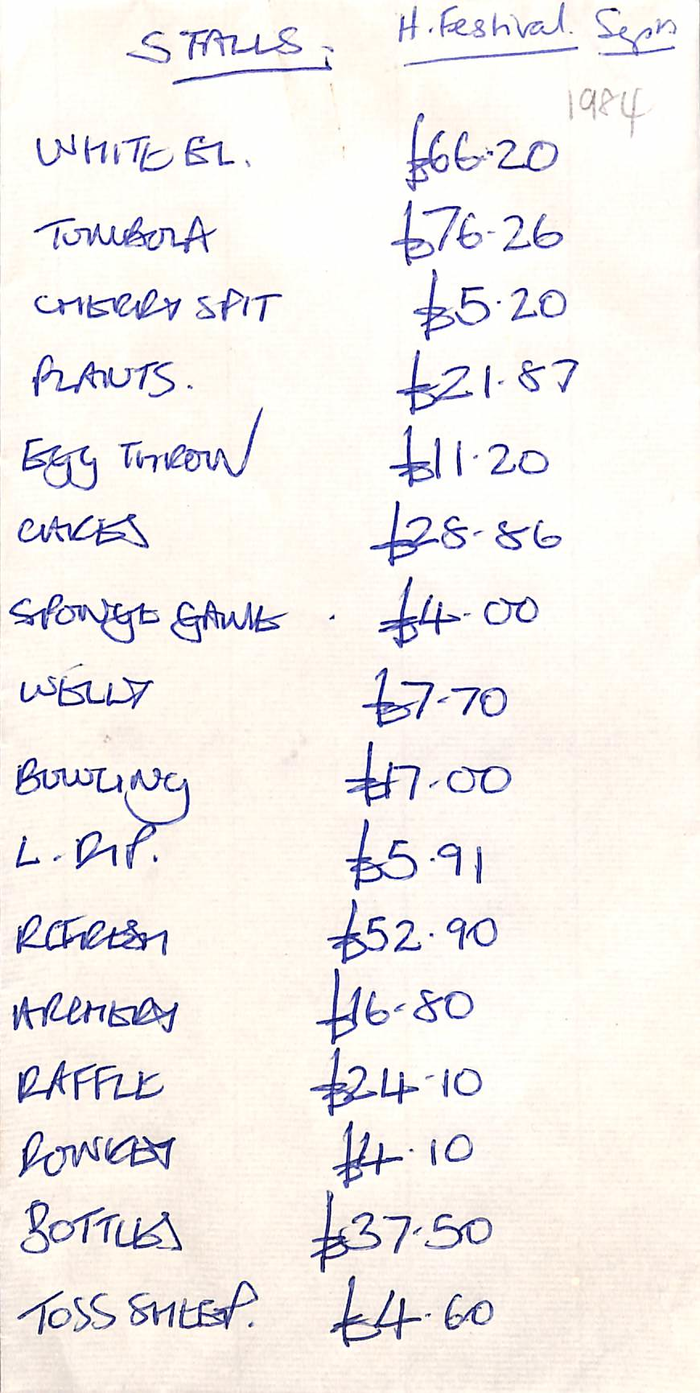 STALLS. H. Festival. Sept
1984
WHITE EL. £66.20
TOMBOLA £76.26
CHERRY SPIT £5.20
PLANTS. £21.87
EGG THROW £11.20
CAKES £28.86
SPONGE GAME . £4.00
WELLY £7.70
BOWLING £17.00
L. DIP. £5.91
REFRESH £52.90
ARCHERY £16.80
RAFFLE £24.10
DONKEY £4.10
BOTTLES £37.50
TOSS SHEEP. £4.60